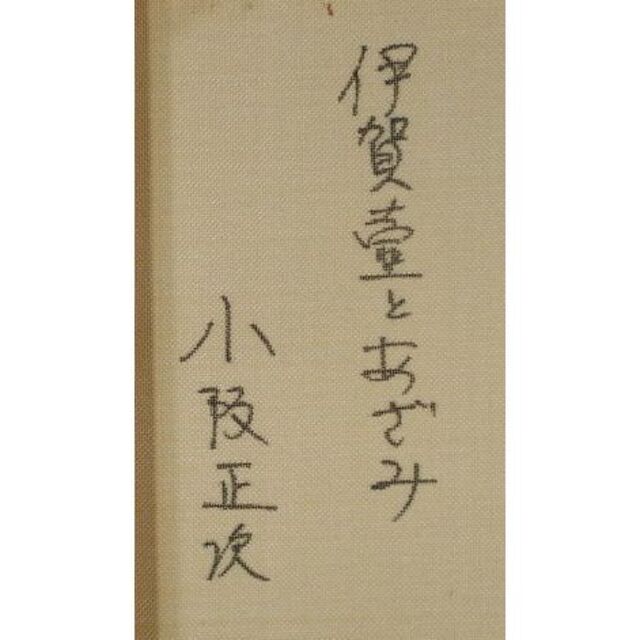 伊賀壷とあざみ
小阪正次